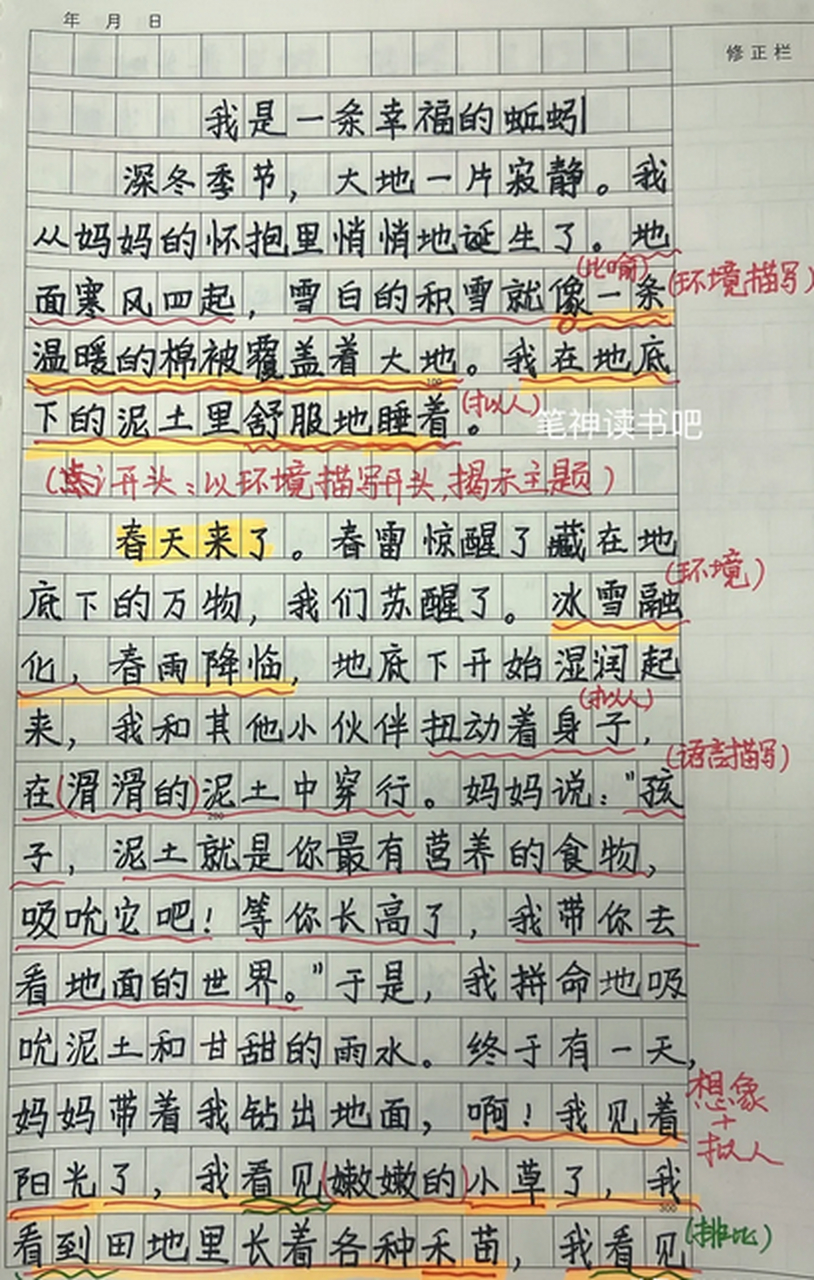 年 月 日
修正栏
我是一条幸福的蚯蚓
深冬季节，大地一片寂静。我
从妈妈的怀抱里悄悄地诞生了。地
(比喻)
面寒风四起，雪白的积雪就像一条
(环境描写)
温暖的棉被覆盖着大地。我在地底
100
下的泥土里舒服地睡着。
(拟人)
笔神读书吧
开头：以环境描写开头，揭示主题)
春天来了。春雷惊醒了藏在地
(环境)
底下的万物，我们苏醒了。冰雪融
化，春雨降临，地底下开始湿润起
(拟人)
来，我和其他小伙伴扭动着身子，
(语言描写)
在(滑滑的)泥土中穿行。妈妈说："孩
200
子，泥土就是你最有营养的食物，
吸吮它吧！等你长高了，我带你去
看地面的世界。"于是，我拼命地吸
吮泥土和甘甜的雨水。终于有一天，
妈妈带着我钻出地面，啊！我见着
想象
+
拟人
阳光了，我看见(嫩嫩的)小草了，我
300
看到田地里长着各种禾苗，我看见
(排比)